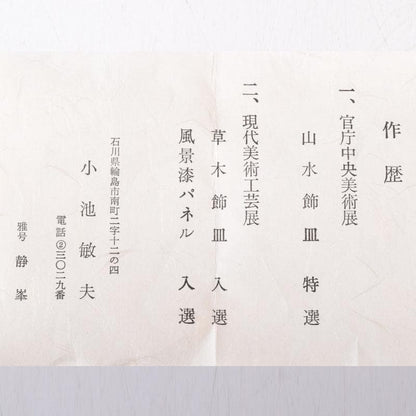 作歴
一、官庁中央美術展
山水飾皿 特選
二、現代美術工芸展
草木飾皿 入選
風景漆パネル 入選
石川県輪島市南町二字十二の四
小池敏夫
電話②三〇二九番
雅号 静峯